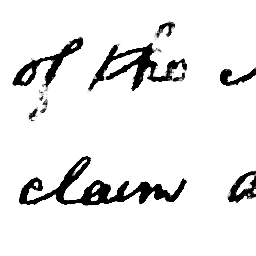 of the
claim